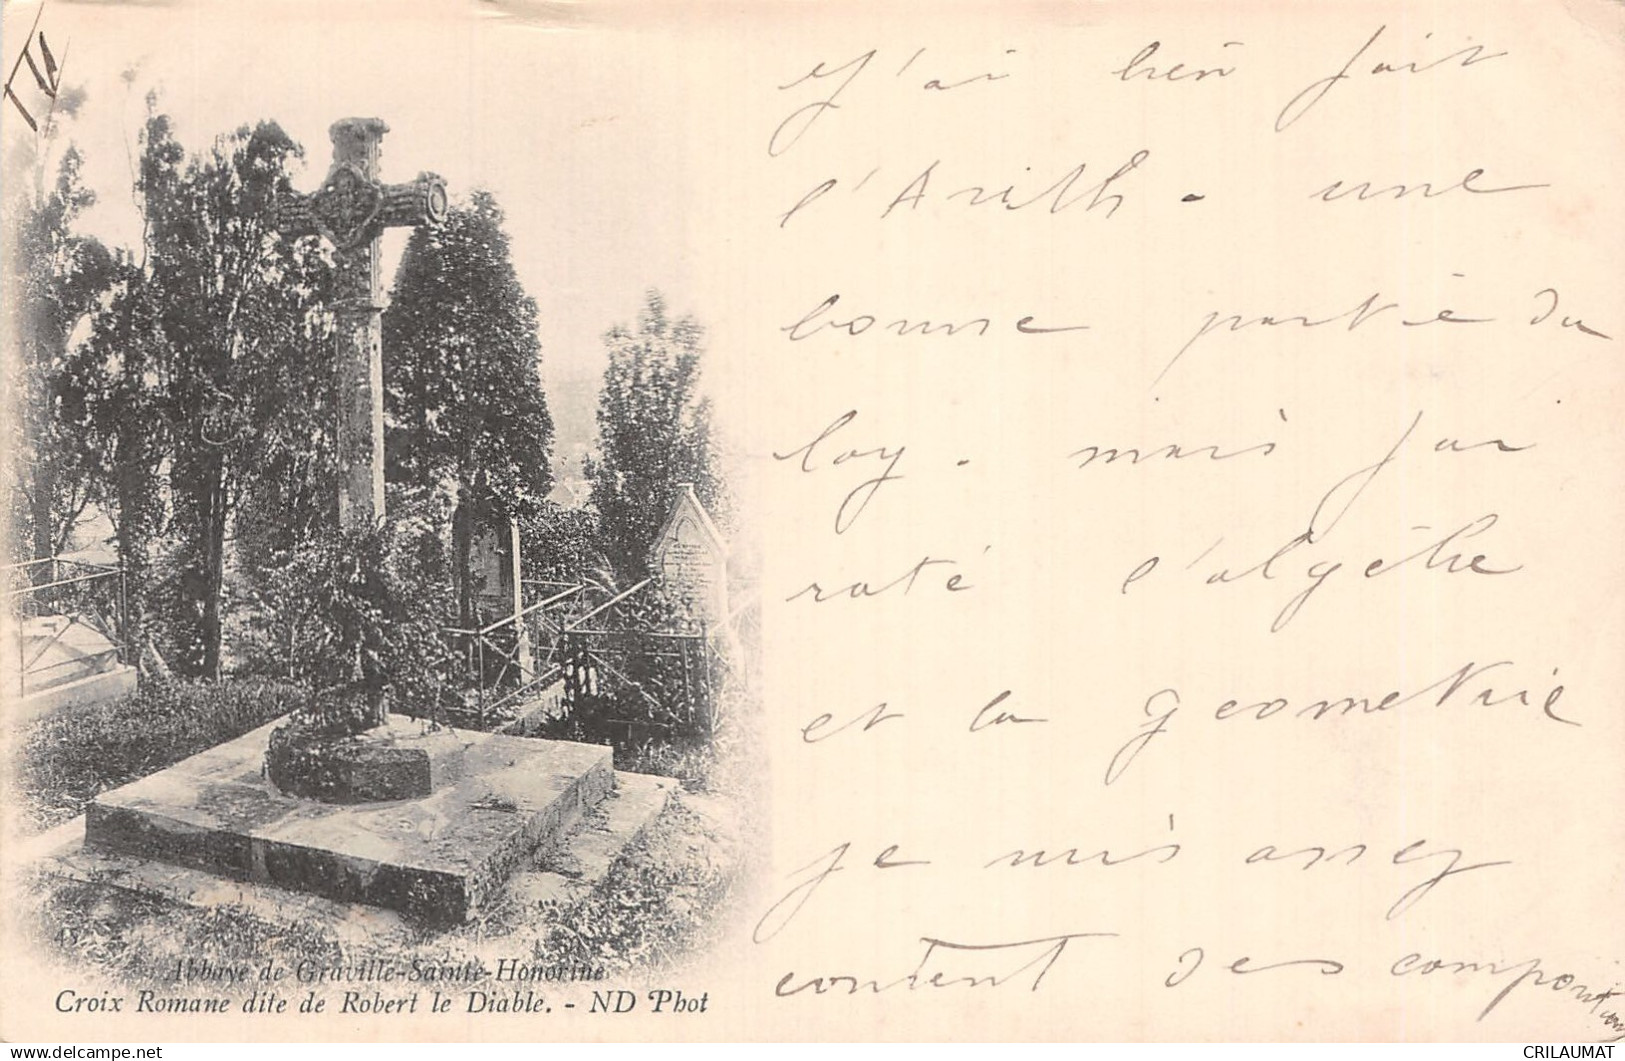 IV
J'ai bien fait
l'Arith - une
bonne partie du
log. mais j'ai
raté l'algèbre
et la géométrie
je suis assez
content des compositions
45
Abbaye de Graville-Sainte-Honorine
Croix Romane dite de Robert le Diable. - ND Phot
CRILAUMAT